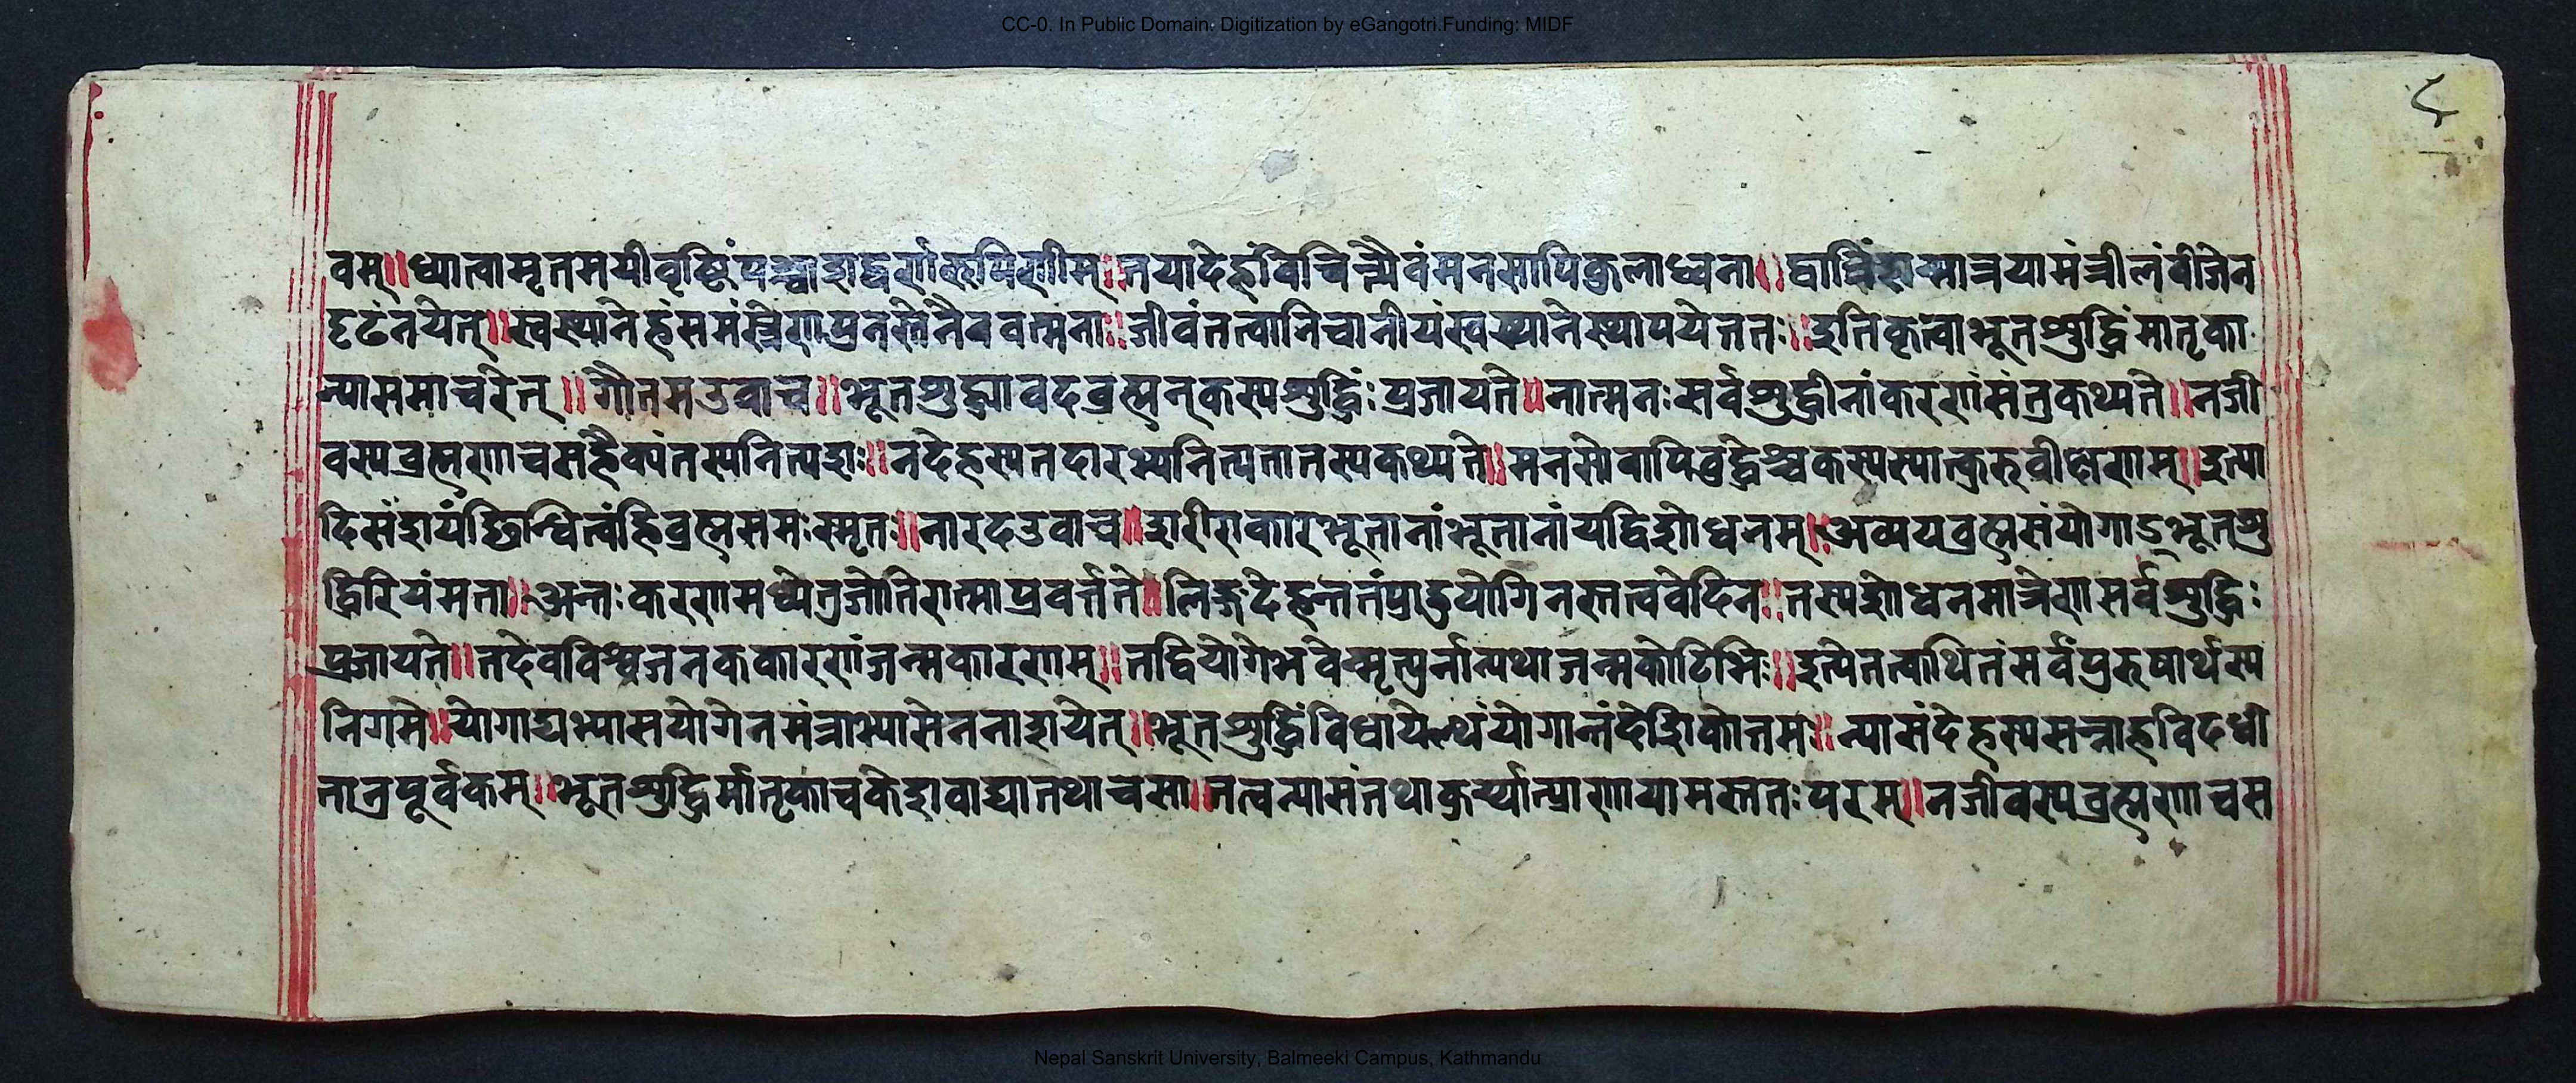 CC-0. In Public Domain. Digitization by eGangotri.Funding: MIDF
८
वम्॥ध्यात्वामृतमयीवृष्टिंपश्चाशद्वर्णारूपिणीम्॥तयादेहंविचिन्त्यैवंमनसापिकुलाध्वना॥द्वात्रिंशन्मात्रयामंत्रीलंबीजेन
दृढंनयेत्॥स्वस्थानेहंसमंत्रेणपुनस्तेनैववत्मना॥जीवंतत्वानिचानीयंस्वस्थानेस्थापयेत्ततः॥इतिकृत्वाभूतशुद्धिंमातृका
न्याससमाचरेत्॥गौतमउवाच॥भूतशुद्ध्यावदब्रह्मन्कस्यशुद्धिंःप्रजायते॥नात्मनःसर्वशुद्धीनांकरणंसंत्रकथ्यते॥नजी
वस्यब्रह्मणाचसहैक्यंतस्यनित्यशः॥नदेहस्यतदारभ्यनित्यतातस्यकथ्यते॥मनसोवापिवुद्धेश्चकस्यस्यात्कुरुवीक्षणम्॥इत्या
दिसंशयंछिन्धित्वंहिब्रह्मसमःस्मृतः॥नारदउवाच॥शरीराकारभूतानांभूतानांयद्विशोधनम्॥अव्ययब्रह्मसंयोगाऽभूतशु
द्धिरियंमता॥अन्तःकरणमध्येत्रजोतिरात्माप्रवर्त्तते॥लिङ्गदेहन्ततंप्राहुयोगिनस्तत्ववेदिनः॥तस्यशोधनमात्रेणसर्वशुद्धिः
प्रजायते॥तदेवविश्वजनककारणंजन्मकारणम्॥तद्वियोगेभवेन्मृत्युर्नान्यथाजन्मकोटिभिः॥इत्येतत्कथितंसर्वंपुरुषार्थस्य
निगमे॥योगाद्यभ्यासयोगेनमंत्राभ्यासेननाशयेत्॥भूतशुद्धिंविधायेत्थंयोगान्तंदेशिकोत्तमः॥न्यासंदेहस्यसन्नाहविदधी
तात्रपूर्वकम्॥भूतशुद्धिर्मातृकाचकेशवाद्यातथाचसा॥तत्वन्यासंतथाकुर्य्यात्प्राणायामस्ततःपरम्॥नजीवस्यब्रह्मणाचस
Nepal Sanskrit University, Balmeeki Campus, Kathmandu